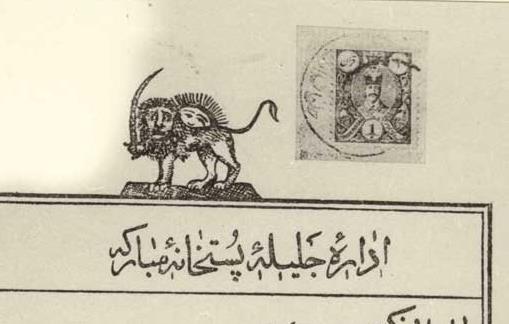 1
ادارهٔ جلیلهٔ پُستخانهٔ مبارکه